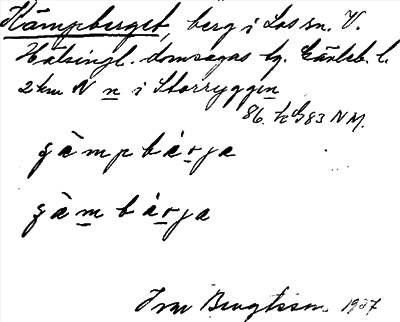 Kämpberget, berg i Los sn. V.
Hälsingl. domsagas tg. Gävleb. l.
2 km N n i Storryggen
86. h G 83 N M.
gàmpbárja
gàmbárja
Ivar Bengtsson 1937